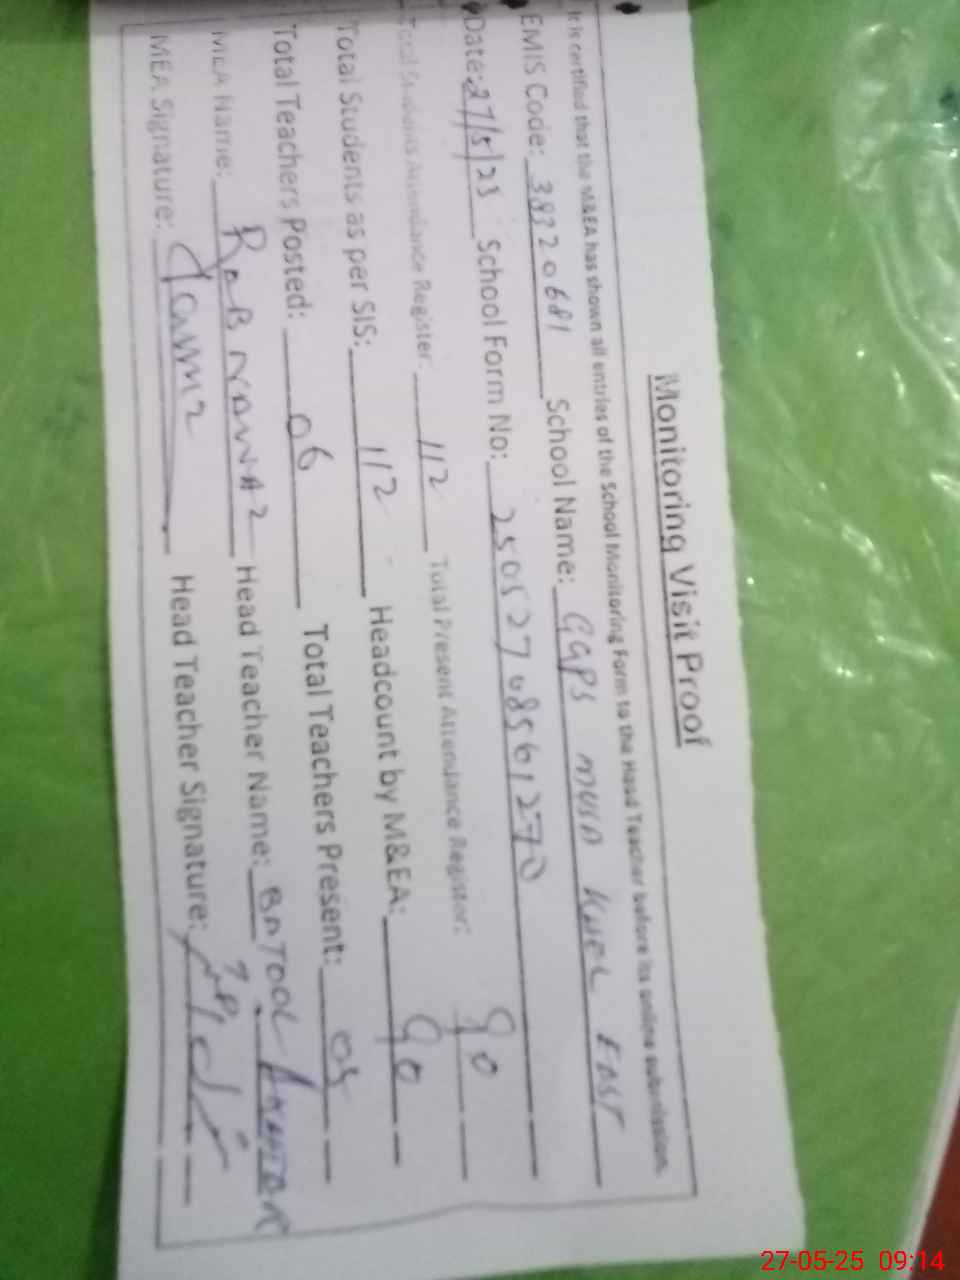 Monitoring Visit Proof
It is certified that the M&EA has shown all entries of the School Monitoring Form to the Head Teacher before its online submission.
EMIS Code: 38320681 School Name: GGPS MUSA KHEL EAST
Date: 27/5/25 School Form No: 25052708561270
Total Students Attendance Register: 112 Total Present Attendance Register: 90
Total Students as per SIS: 112 Headcount by M&EA: 90
Total Teachers Posted: 06 Total Teachers Present: 05
MEA Name: Head Teacher Name: BATOOL
MEA Signature: Head Teacher Signature:
27-05-25 09:14